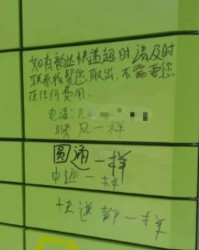 如有韵达快递超时 请及时
联系我帮您取出，不需要您
任何费用。
电话：
顺风一样
圆通一样
申通一样
快递都一样